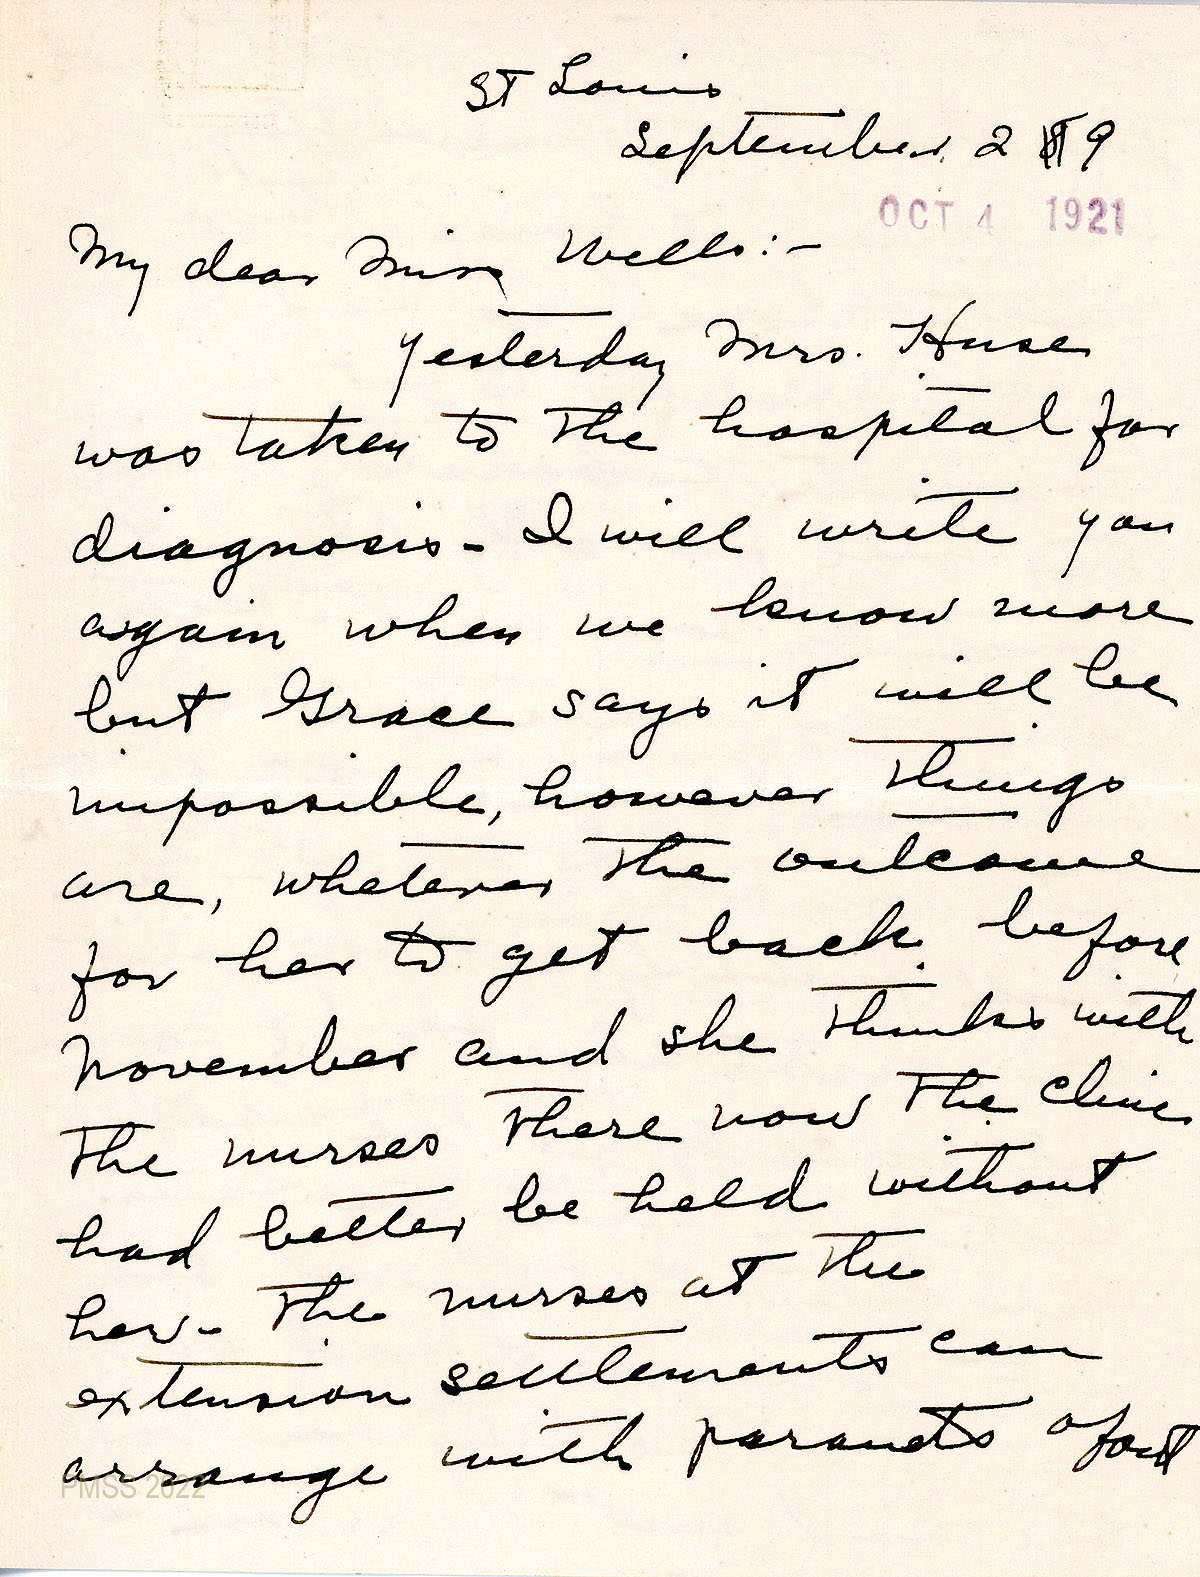 St Louis
September 29
OCT 4 1921
My dear Miss Wells:-
Yesterday Mrs. Huse
was taken to the hospital for
diagnosis - I will write you
again when we know more
but Grace says it will be
impossible, however things
are, whatever the outcome
for her to get back before
November and she thinks with
the nurses there now the clinic
had better be held without
her - The nurses at the
extension settlements can
arrange with parents of
PMSS 2022